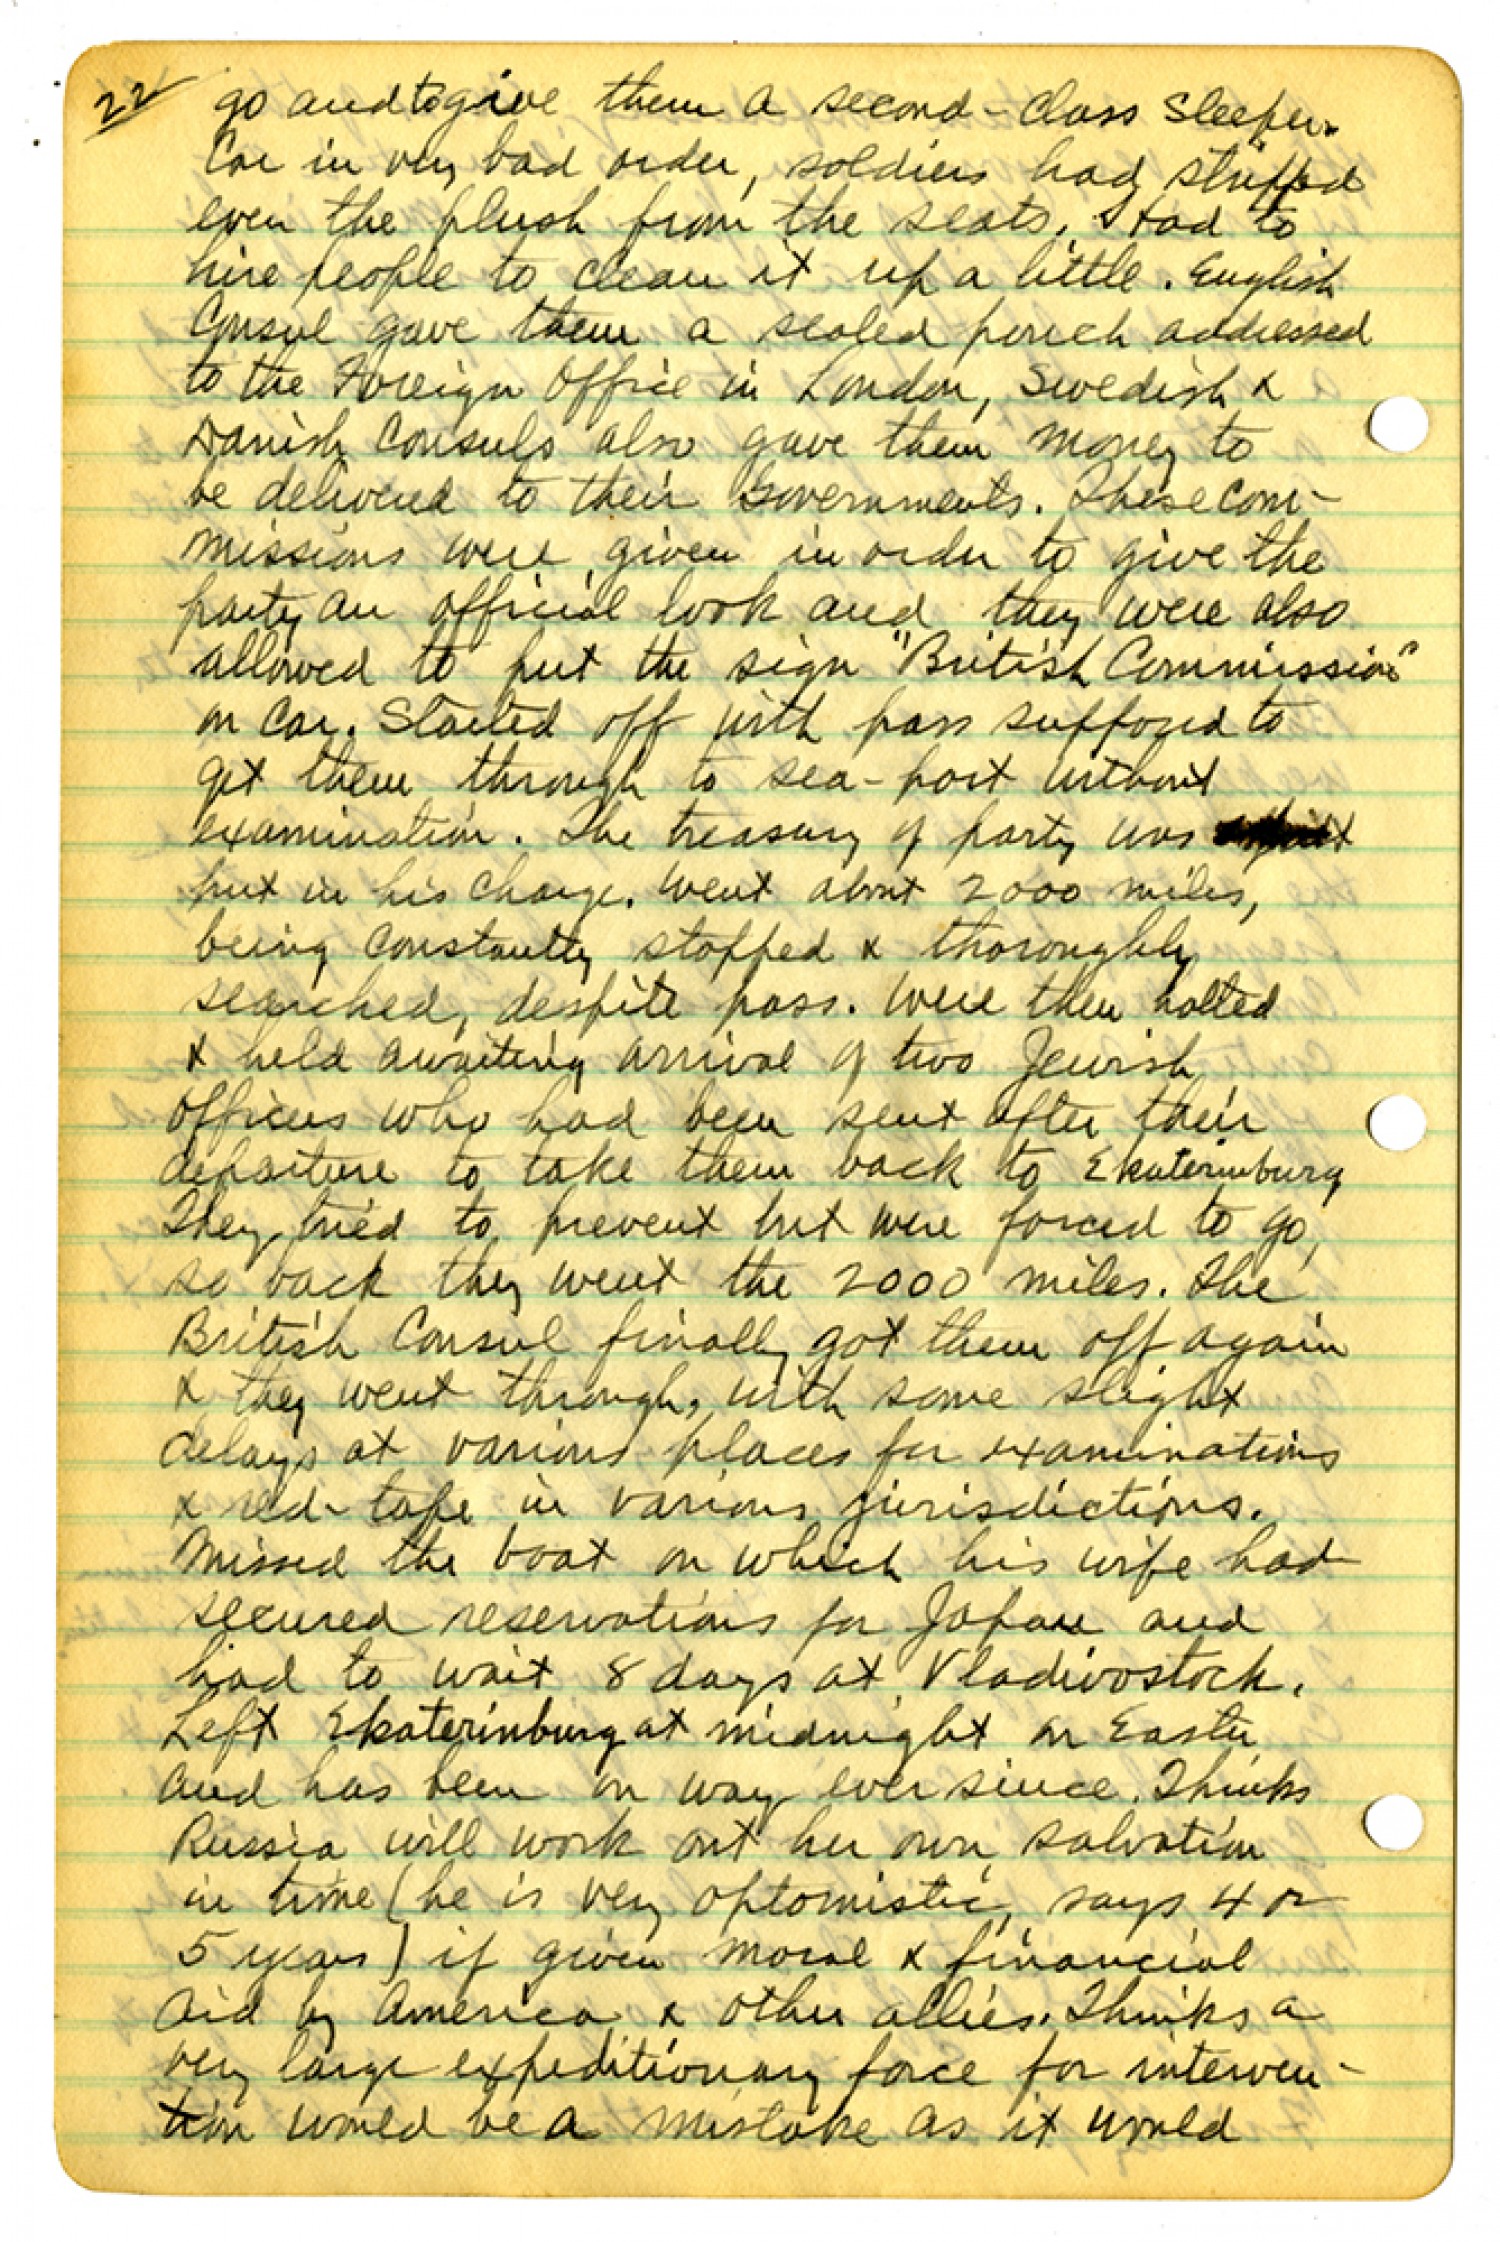 22 go and to give them a second-class sleeper.
Car in very bad order, soldiers had stripped
even the plush from the seats. Had to
hire people to clean it up a little. English
Consul gave them a sealed pouch addressed
to the Foreign Office in London, Swedish &
Danish Consuls also gave them money to
be delivered to their Governments. These com-
missions were given in order to give the
party an official look and they were also
allowed to put the sign "British Commission"
on car. Started off with pass supposed to
get them through to sea-port without
examination. The treasury of party was
put in his charge. Went about 2000 miles,
being constantly stopped & thoroughly
searched, despite pass. Were then halted
& held awaiting arrival of two Jewish
officers who had been sent after their
departure to take them back to Ekaterinburg
They tried to prevent but were forced to go,
so back they went the 2000 miles. The
British Consul finally got them off again
& they went through, with some slight
delays at various places for examinations
& red-tape in various jurisdictions.
Missed the boat on which his wife had
secured reservations for Japan and
had to wait 8 days at Vladivostock.
Left Ekaterinburg at midnight on Easter
and has been on way ever since. Thinks
Russia will work out her own salvation
in time (he is very optomistic, says 4 or
5 years) if given moral & financial
aid by America & other allies. Thinks a
very large expeditionary force for interven-
tion would be a mistake as it would